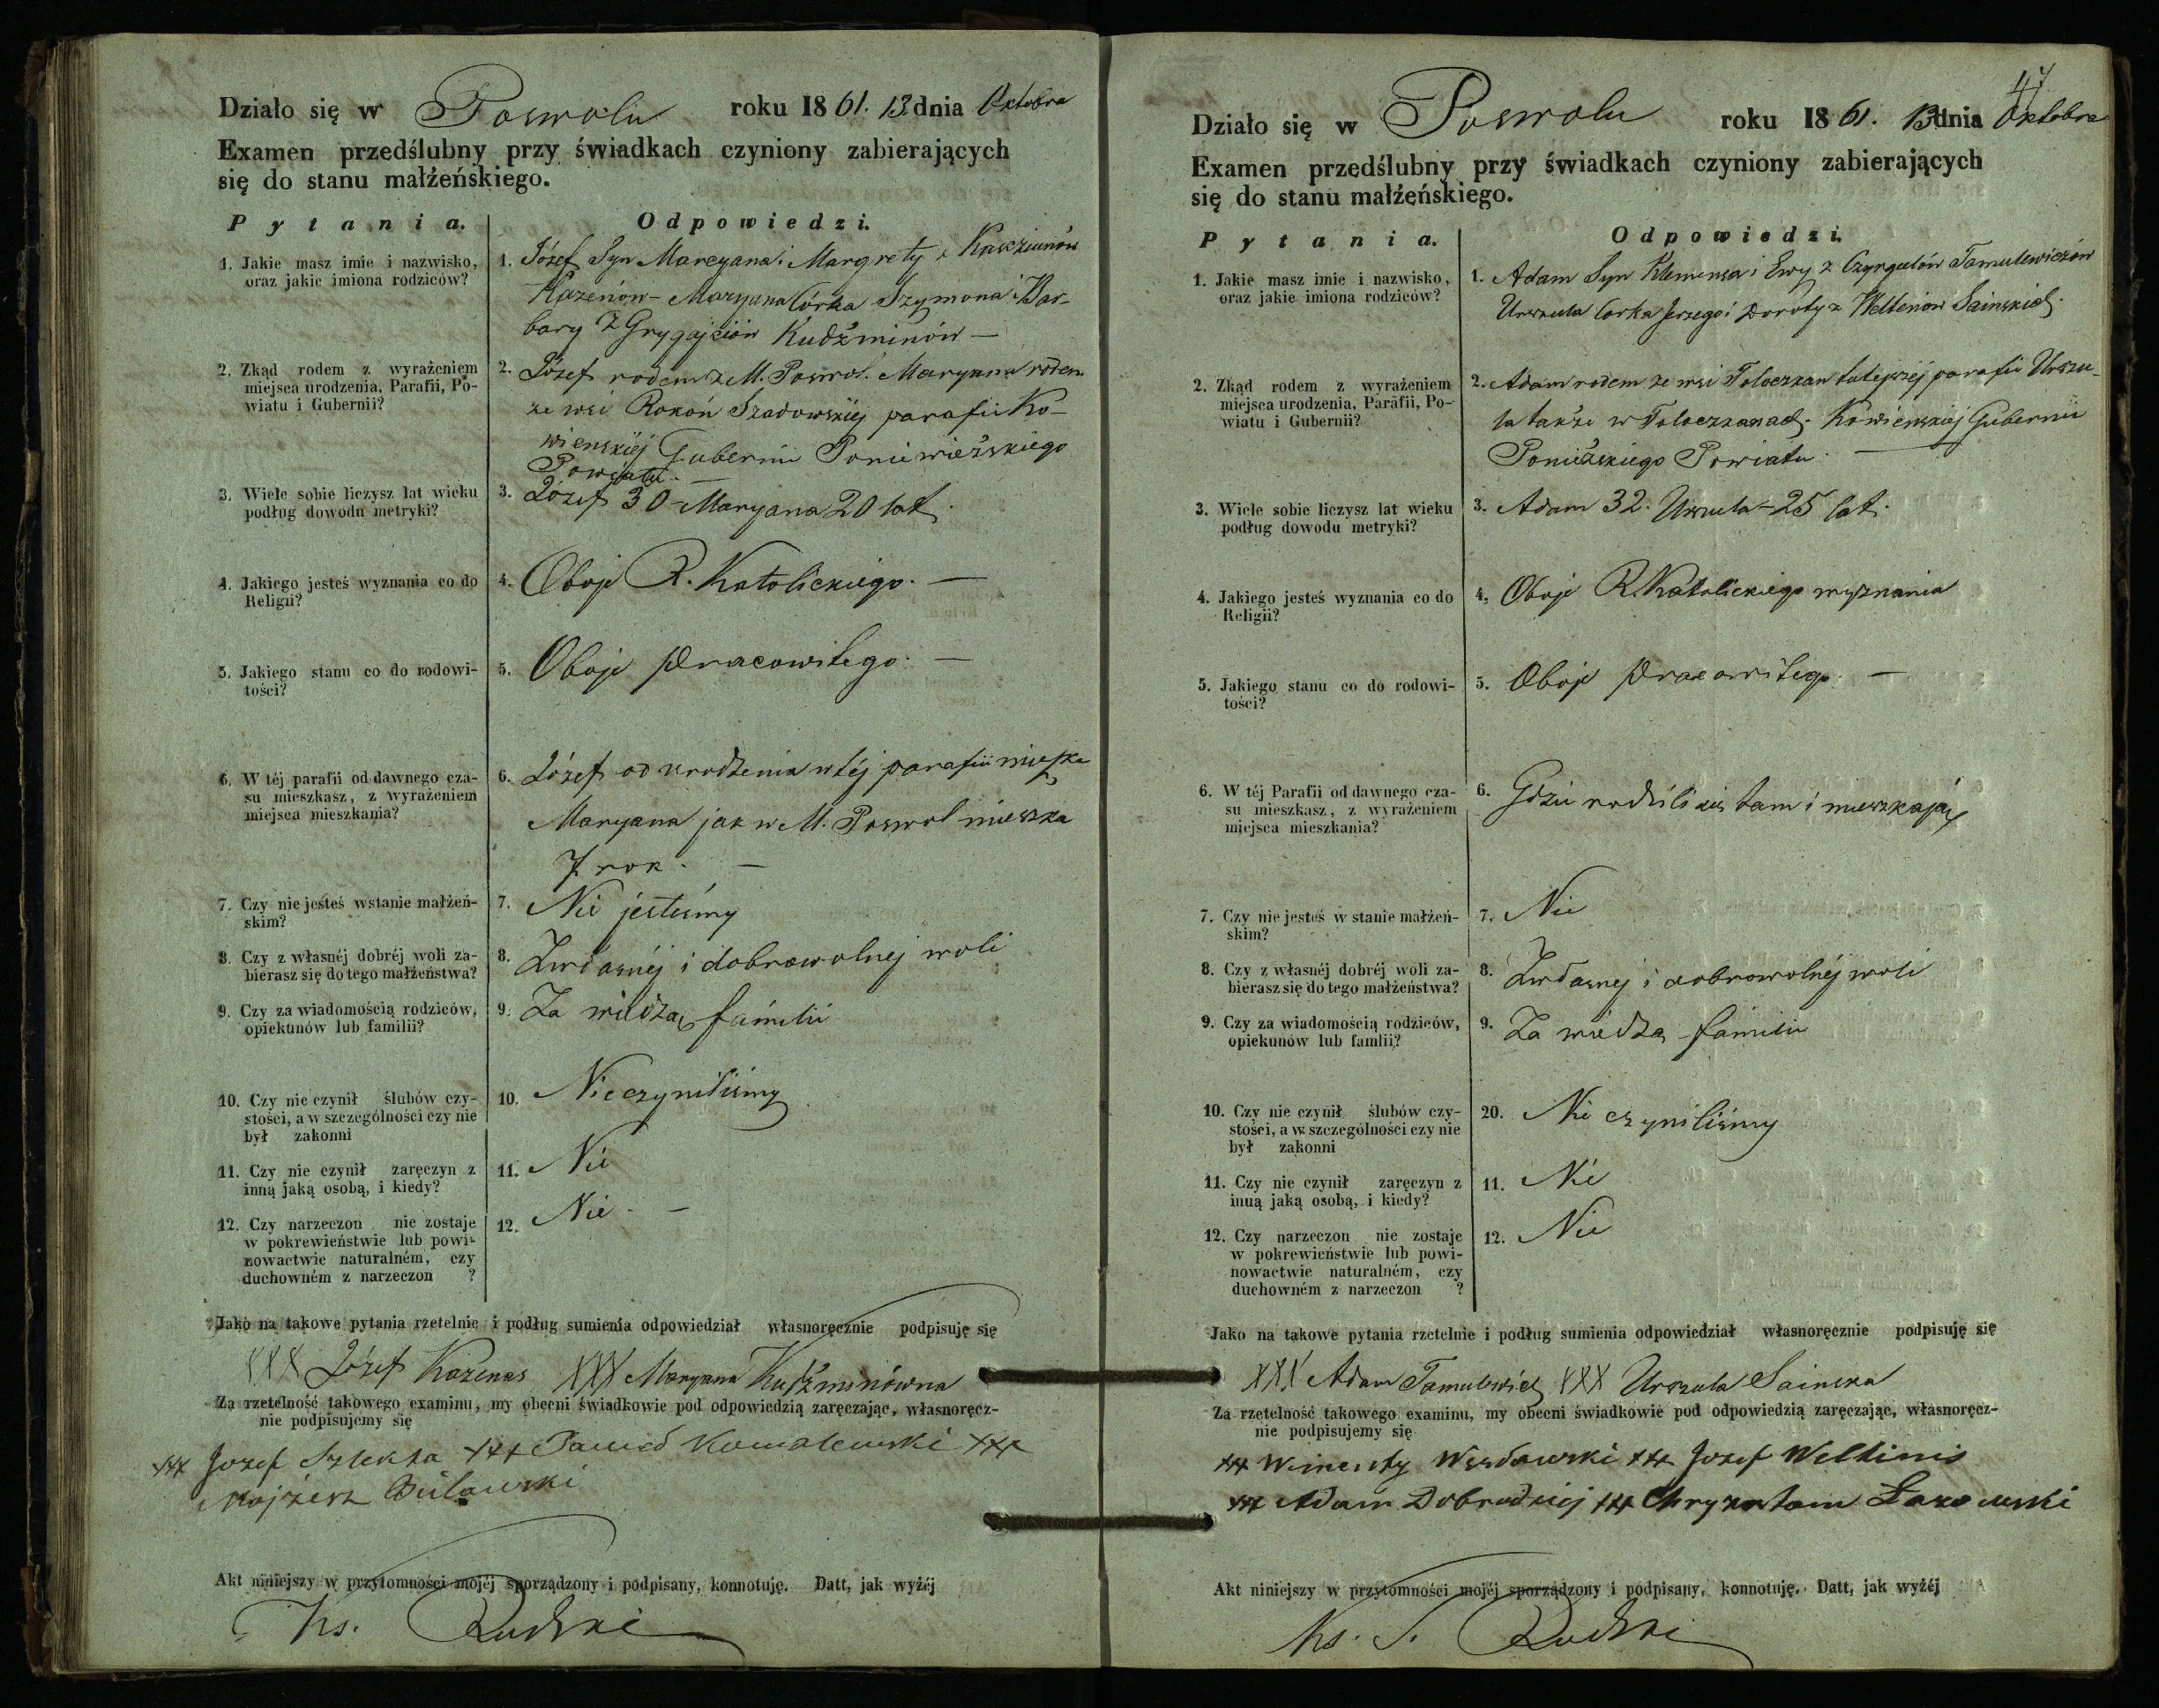 Działo się w Poswolu roku 1861. 13 dnia Oktobra
Examen przedślubny przy świadkach czyniony zabierających
się do stanu małżeńskiego.
Pytania. Odpowiedzi.
1. Jakie masz imie i nazwisko,
oraz jakie imiona rodziców?
1. Józef Syn Marcyana i Margrety z
Kazenów – Maryana Córka Szymona i Bar-
bary z Grygajciów Kudźminów —
2. Zkąd rodem z wyrażeniem
miejsca urodzenia, Parafii, Po-
wiatu i Gubernii?
2. Józef rodem z M. Poswol. Maryana rodem
ze wsi Rokoń Szadowskiej parafii Ko-
wienskiej Gubernii Poniewieżskiego
Powiatu. —
3. Wiele sobie liczysz lat wieku
podług dowodu metryki?
3. Józef 30 – Maryana 20 lat.
4. Jakiego jesteś wyznania co do
Religii?
4. Oboje R. Katolickiego. —
5. Jakiego stanu co do rodowi-
tości?
5. Oboje Pracowitego. —
6. W téj parafii od dawnego cza-
su mieszkasz, z wyrażeniem
miejsca mieszkania?
6. Józef od urodzenia w téj parafii
Maryana jak w M. Poswol mieszka
7 rok. —
7. Czy nie jesteś w stanie małżeń-
skim?
7. Nie jesteśmy
8. Czy z własnéj dobréj woli za-
bierasz się do tego małżeństwa?
8. Z własnéj i dobrowolnej woli
9. Czy za wiadomością rodziców,
opiekunów lub familii?
9. Za wiedzą familii
10. Czy nie czynił ślubów czy-
stości, a w szczególności czy nie
był zakonni
10. Nie czyniliśmy
11. Czy nie czynił zaręczyn z
inną jaką osobą, i kiedy?
11. Nie
12. Czy narzeczon nie zostaje
w pokrewieństwie lub powi-
nowactwie naturalném, czy
duchowném z narzeczon ?
12. Nie. —
Jako na takowe pytania rzetelnie i podług sumienia odpowiedział własnoręcznie podpisuję się
XXX Józef Kazenas XXX Maryana Kudźminówna
Za rzetelność takowego examinu, my obecni świadkowie pod odpowiedzią zaręczając, własnoręcz-
nie podpisujemy się
xxx Jozef Szlekta xxx Paweł Kowalewski xxx
Mojżesz
Akt niniejszy w przytomności mojéj sporządzony i podpisany, konnotuję. Datt, jak wyżéj
Ks. Rudzki
47
Działo się w Poswolu roku 1861. 13 dnia Oktobra
Examen przedślubny przy świadkach czyniony zabierających
się do stanu małżeńskiego.
Pytania. Odpowiedzi.
1. Jakie masz imie i nazwisko,
oraz jakie imiona rodziców?
1. Adam Syn Klemensa i Ewy z Tamulewiczów
Urszula Corka Jerzego i Doroty z Weltenów Sainskich.
2. Zkąd rodem z wyrażeniem
miejsca urodzenia, Parafii, Po-
wiatu i Gubernii?
2. Adam rodem ze wsi Toloczkan tutejszéj parafii Urszu-
la także w Toloczkanach. Kowienskiej Gubernii
Ponieżskiego Powiatu. —
3. Wiele sobie liczysz lat wieku
podług dowodu metryki?
3. Adam 32. Urszula – 25 lat.
4. Jakiego jesteś wyznania co do
Religii?
4. Oboje R. Katolickiego wyznania
5. Jakiego stanu co do rodowi-
tości?
5. Oboje Pracowitego. —
6. W téj Parafii od dawnego cza-
su mieszkasz, z wyrażeniem
miejsca mieszkania?
6. Gdzie rodzili się tam i mieszkają
7. Czy nie jesteś w stanie małżeń-
skim?
7. Nie
8. Czy z własnéj dobréj woli za-
bierasz się do tego małżeństwa?
8. Z własnej i dobrowolnéj woli
9. Czy za wiadomością rodziców,
opiekunów lub famlii?
9. Za wiedzą familii
10. Czy nie czynił ślubów czy-
stości, a w szczególności czy nie
był zakonni
20. Nie czyniliśmy
11. Czy nie czynił zaręczyn z
inuą jaką osobą, i kiedy?
11. Nie
12. Czy narzeczon nie zostaje
w pokrewieństwie lub powi-
nowactwie naturalném, czy
duchowném z narzeczon ?
12. Nie
Jako na takowe pytania rzetelnie i podług sumienia odpowiedział własnoręcznie podpisuję się
XXX Adam Tamulewicz XXX Urszula Sainska
Za rzetelność takowego examinu, my obecni świadkowie pod odpowiedzią zaręczając, własnoręcz-
nie podpisujemy się
xxx Wincenty xxx Jozef Weltinis
xxx Adam Dobrodziej xxx Chryzostom
Akt niniejszy w przytomności mojéj sporządzony i podpisany, konnotuję. Datt, jak wyżéj
Ks. S. Rudzki